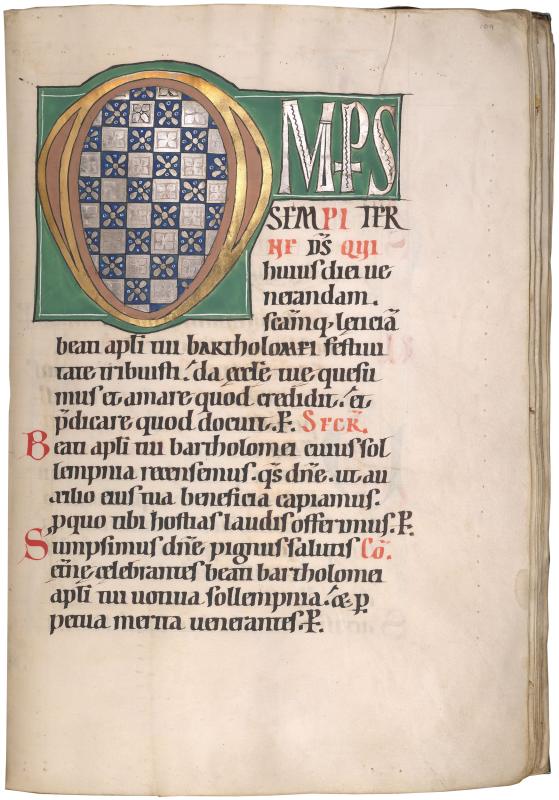 109
OMPS
SEMPITER
NE D̄S QUI
huius diei ue
nerandam.
sc̄amq; leticiā
beati apl̄i tui BARTHOLOMEI festiui
tate tribuisti. da eccl̄e tue quesu
mus et amare quod credidit. et
p̄dicare quod docuit. P. SECR̄.
Beati apl̄i tui bartholomei cuius sol
lempnia recensemus. qs̄ dn̄e. ut au
xilio eius tua beneficia capiamus.
pquo tibi hostias laudis offerimus. P.
Sumpsimus dn̄e pignus salutis Cō.
et̄ne celebrantes beati bartholomei
apl̄i tui uotiua sollempnia. &
petua merita uenerantes. P.